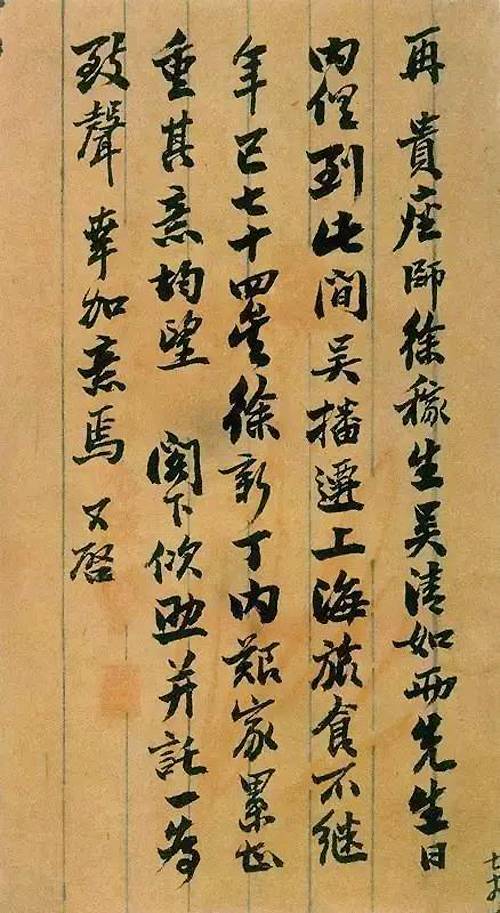 再 貴座師徐稼生吴清如兩先生日
内俱到此間吴播遷上海旅食不继
年已七十四矣徐新丁内艱家累甚
重其意均望 閣下佽助并託一為
致聲 幸加意焉 又啓